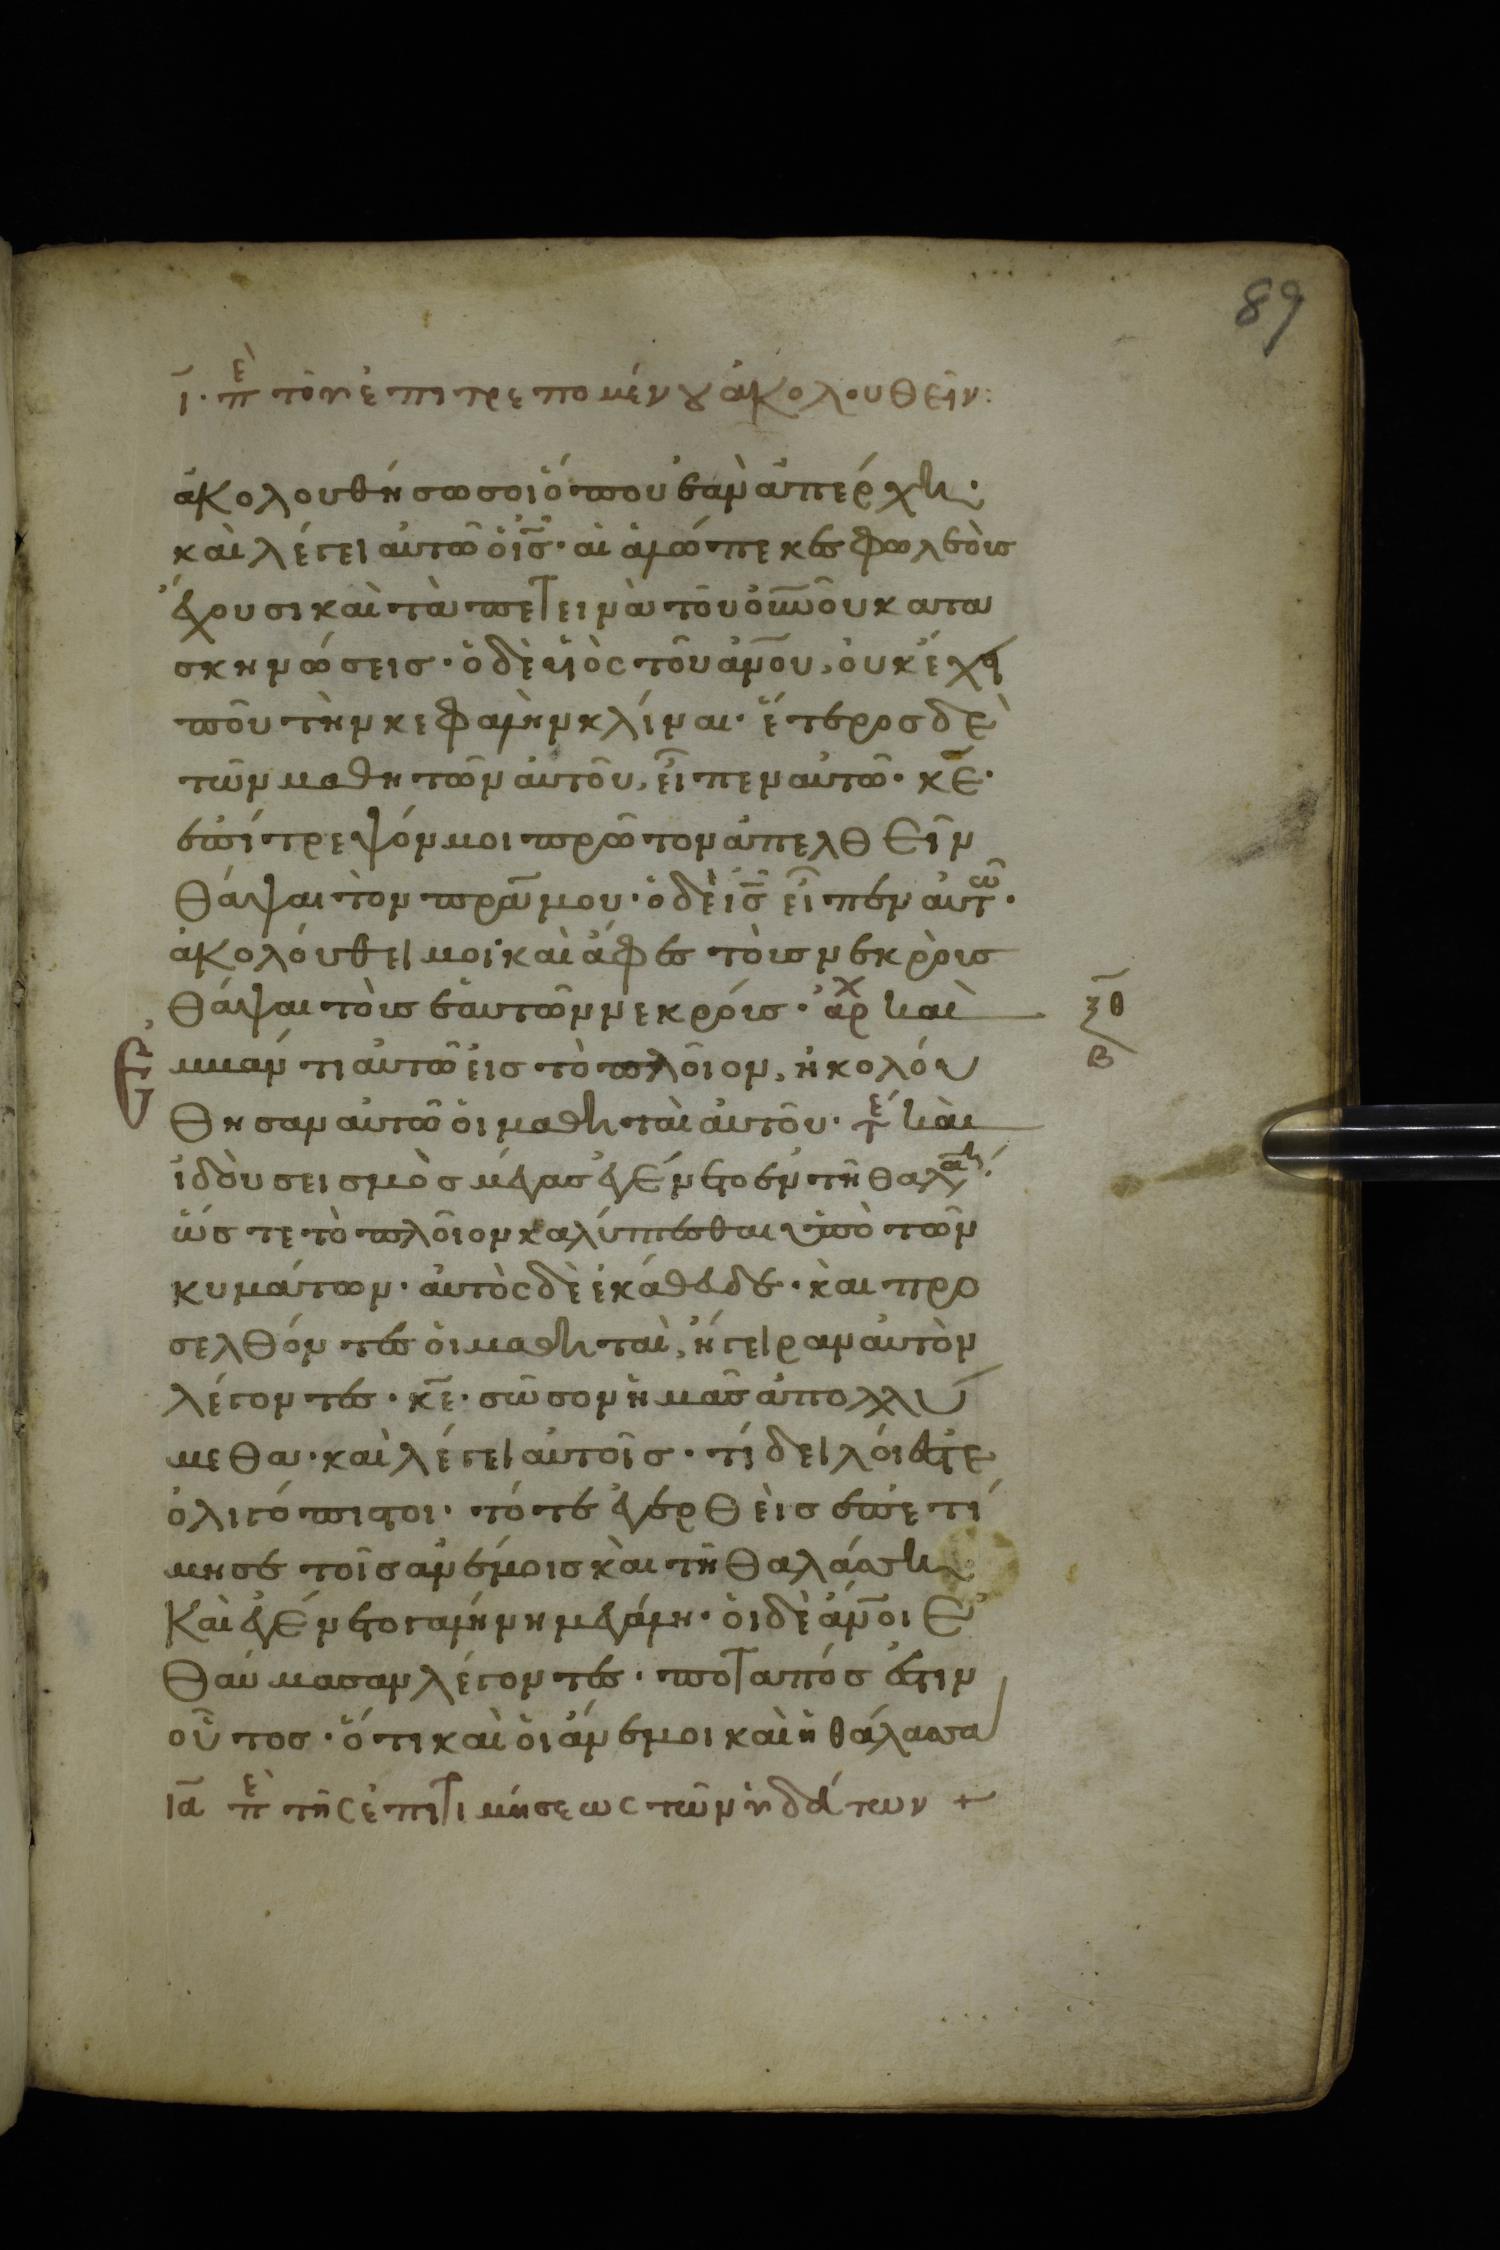 89
ι̅· πὲ τοῦ ἐπιτρεπομένου ἀκολουθεῖν:
ἀκολουθήσω σοι ὅπου ἐὰν ἀπέρχη·
καὶ λέγει αὐτῶ ὁ ι̅ς̅· αἱ ἀλώπεκες φωλεοὺς
ἔχουσι καὶ τὰ πετεινὰ τοῦ ου̅νο̅υ κατα
σκηνώσεις· ὁ δὲ υἱὸς τοῦ ἀν̅ου, οὐκ ἔχει
ποῦ τὴν κεφαλὴν κλίναι· ἕτερος δὲ
τῶν μαθητῶν αὐτοῦ, εἶπεν αὐτῶ· κ̅ε̅·
ἐπίτρεψόν μοι πρῶτον ἀπελθεῖν
θάψαι τὸν πρ̅α μου· ὁ δὲ ι̅ς̅ εἶπεν αὐτῶ·
ἀκολούθει μοι· καὶ ἄφες τοὺς νεκροὺς
θάψαι τοὺς ἑαυτῶν νεκρούς· ἀρχ καὶ
ξθ
β
ἐμβάντι αὐτῶ εἰς τὸ πλοῖον, ἠκολού
θησαν αὐτῶ οἱ μαθηταὶ αὐτοῦ· τε καὶ
ἰδοὺ σεισμὸς μέγας ἐγένετο ἐν τῆ θαλάσση·
ὥστε τὸ πλοῖον καλύπτεσθαι ὑπὸ τῶν
κυμάτων· αὐτὸς δὲ ἐκάθευδε· καὶ προ
σελθόντες οἱ μαθηταὶ, ἤγειραν αὐτὸν
λέγοντες· κ̅ε̅· σῶσον ἡμᾶς ἀπολλύ
μεθα· καὶ λέγει αὐτοῖς· τί δειλοί ἐστε
ὀλιγόπιστοι· τότε ἐγερθεὶς ἐπετί
μησε τοῖς ἀνέμοις καὶ τῆ θαλάσση
καὶ ἐγένετο γαλήνη μεγάλη· οἱ δὲ ἄν̅οι ἐ
θαύμασαν λέγοντες· ποταπός ἐστιν
οὗτος· ὅτι καὶ οἱ ἄνεμοι καὶ ἡ θάλασσα
ι̅α̅ πὲ τῆς ἐπιτιμήσεως τῶν ὑδάτων +